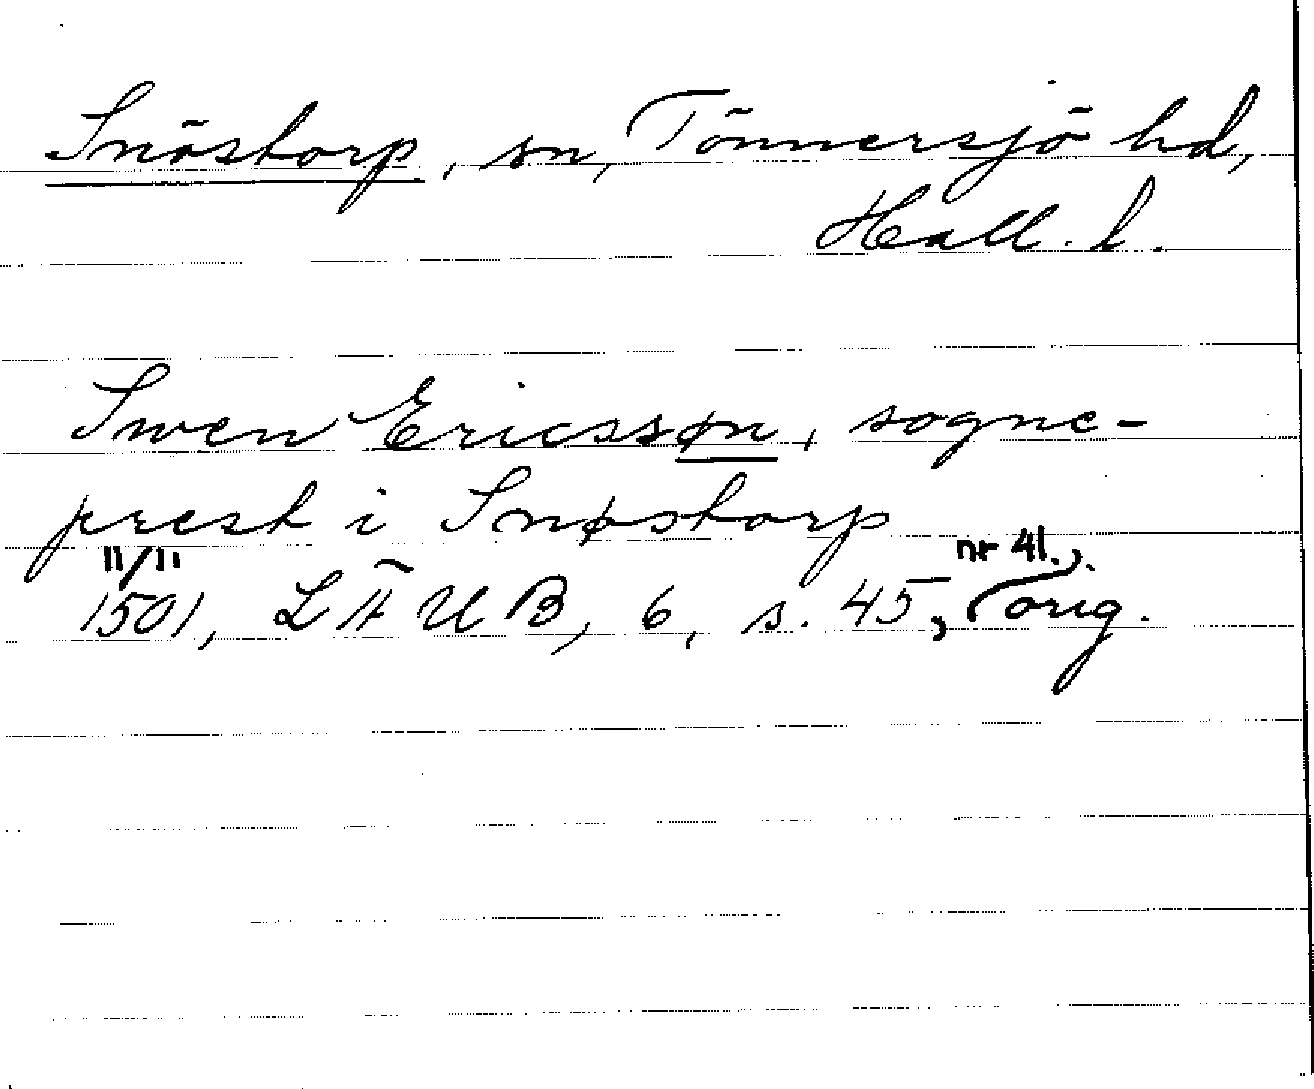 Snöstorp, sn, Tönnersjö hd,
Hall. l.
Swen Ericssøn, sogne-
prest i Snøstorp
11/11 nr 41.
1501, LÄUB, 6, s. 45, orig.